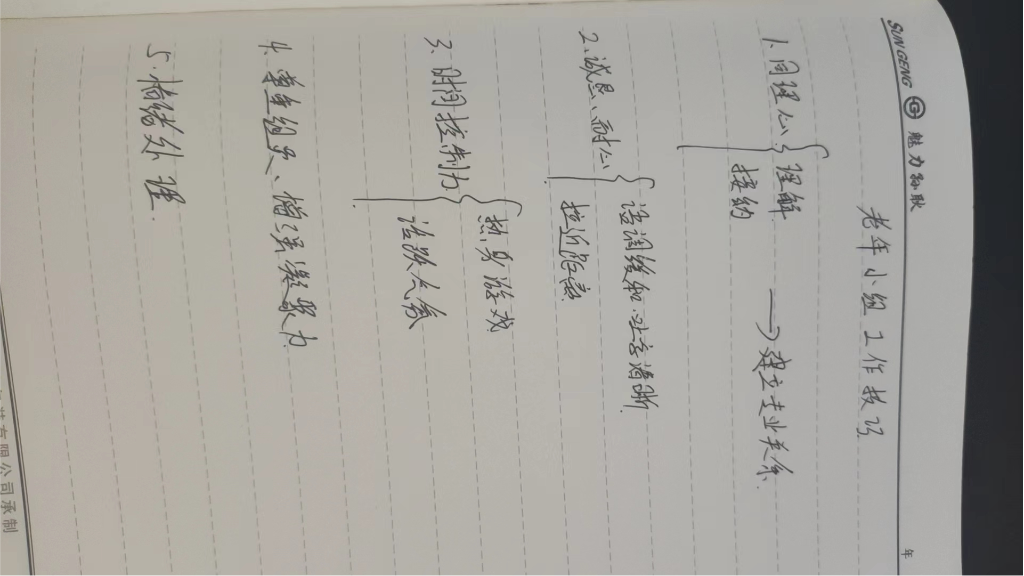 SUNGENG 魅力孙耿
年
老年小组工作技巧
1.同理心 理解
接纳
→建立专业关系
2、诚恳、耐心 语调缓和、吐字清晰
拉近距离
3、时间控制力 热身游戏
活跃气氛
4、尊重组员、增强凝聚力
5.情绪处理.
有限公司承制